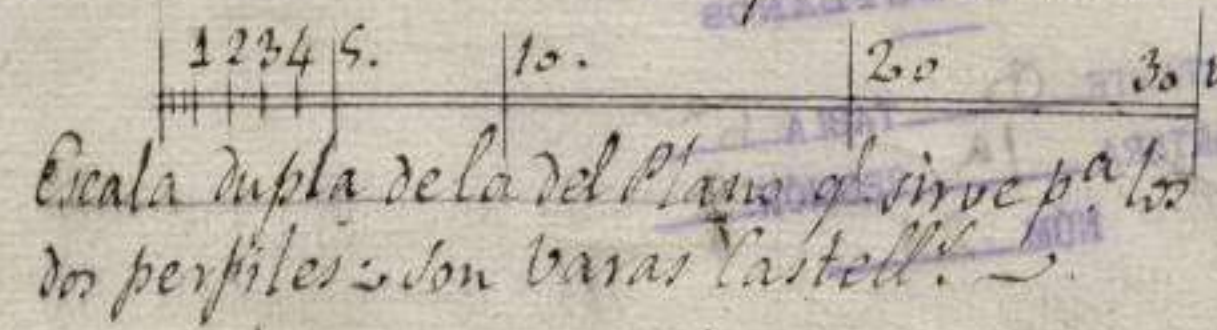 1 2 3 4 5. 10. 20 30
Escala dupla de la del Plano q.e sirve p.a los
dos perfiles: son varas Castell.s